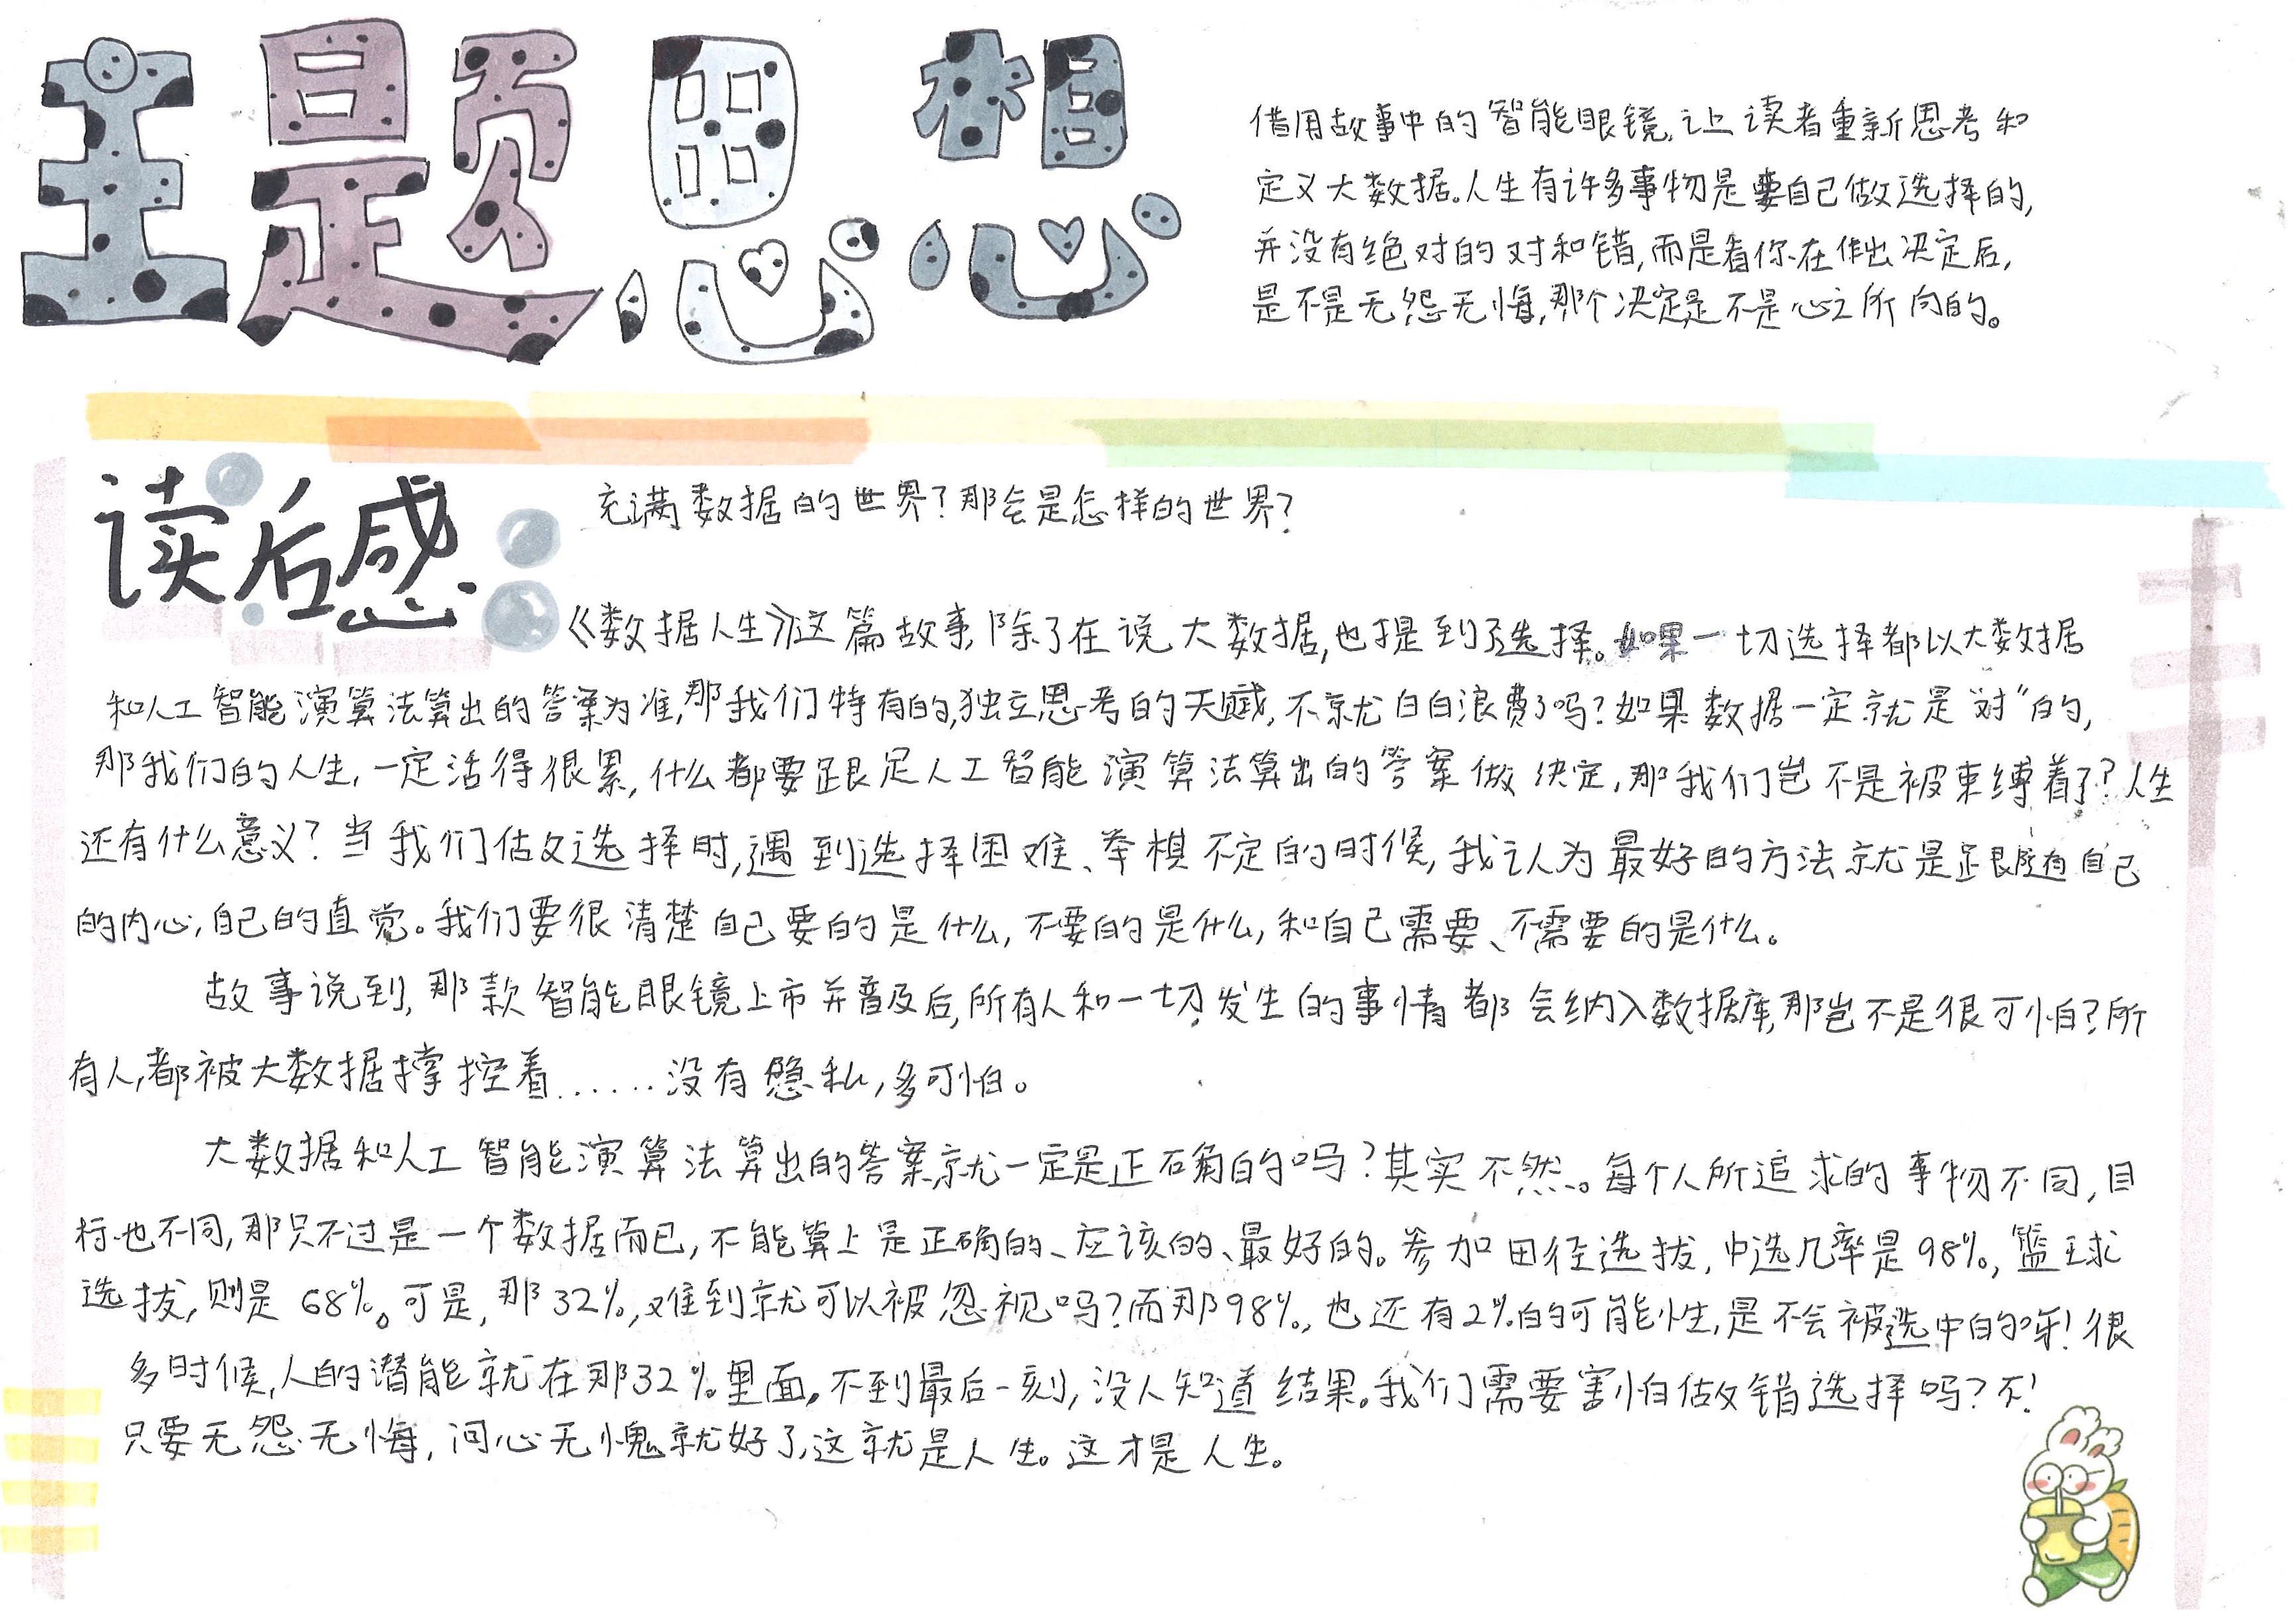 主题思想
借用故事中的智能眼镜,让读者重新思考和
定义大数据。人生有许多事物是要自己做选择的,
并没有绝对的对和错,而是看你在作出决定后,
是不是无怨无悔,那个决定是不是心之所向的。
读后感
充满数据的世界?那会是怎样的世界?
《数据人生》这篇故事,除了在说大数据,也提到了选择。如果一切选择都以大数据
和人工智能演算法算出的答案为准,那我们特有的,独立思考的天赋,不就白白浪费了吗?如果数据一定就是“对”的,
那我们的人生,一定活得很累,什么都要跟足人工智能演算法算出的答案做决定,那我们岂不是被束缚着了?人生
还有什么意义?当我们做选择时,遇到选择困难、举棋不定的时候,我认为最好的方法就是跟随自己
的内心,自己的直觉。我们要很清楚自己要的是什么,不要的是什么,和自己需要、不需要的是什么。
故事说到,那款智能眼镜上市并普及后,所有人和一切发生的事情都会纳入数据库,那岂不是很可怕?所
有人,都被大数据撑控着......没有隐私,多可怕。
大数据和人工智能演算法算出的答案,就一定是正确的吗?其实不然。每个人所追求的事物不同,目
标也不同,那只不过是一个数据而已,不能算上是正确的、应该的、最好的。参加田径选拔,中选几率是98%,篮球
选拔,则是68%。可是,那32%,难到就可以被忽视吗?而那98%,也还有2%的可能性,是不会被选中的呀!很
多时候,人的潜能就在那32%里面。不到最后一刻,没人知道结果。我们需要害怕做错选择吗?不!
只要无怨无悔,问心无愧就好了,这就是人生。这才是人生。